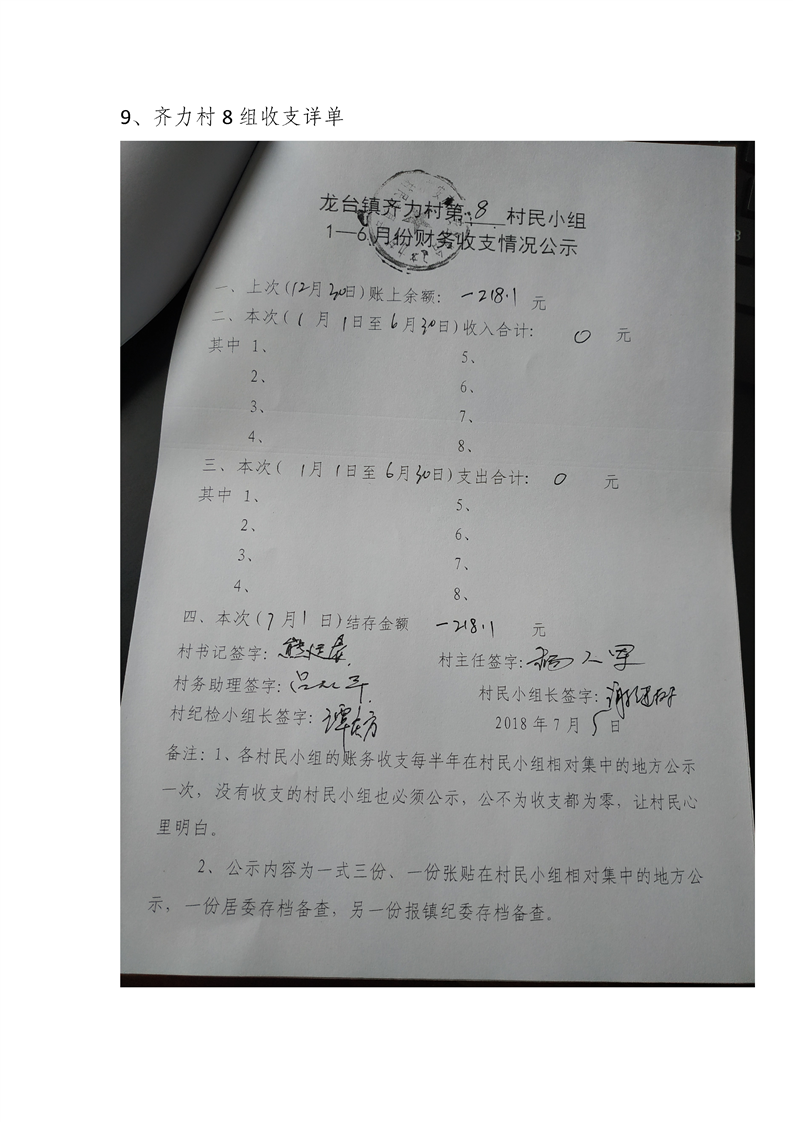 9、齐力村 8 组收支详单
龙台镇齐力村第 8 村民小组
1—6月份财务收支情况公示
一、上次(12月30日)账上余额: -218.1 元
二、本次( 1 月 1日至 6月30日)收入合计: 0 元
其中 1、 5、
2、 6、
3、 7、
4、 8、
三、本次( 1月 1日至 6月30日)支出合计: 0 元
其中 1、 5、
2、 6、
3、 7、
4、 8、
四、本次(7月1 日)结存金额 -218.1 元
村书记签字: 村主任签字:
村务助理签字: 村民小组长签字:
村纪检小组长签字: 2018 年 7 月 5 日
备注:1、各村民小组的账务收支每半年在村民小组相对集中的地方公示
一次,没有收支的村民小组也必须公示,公不为收支都为零,让村民心
里明白。
2、公示内容为一式三份、一份张贴在村民小组相对集中的地方公
示,一份居委存档备查,另一份报镇纪委存档备查。